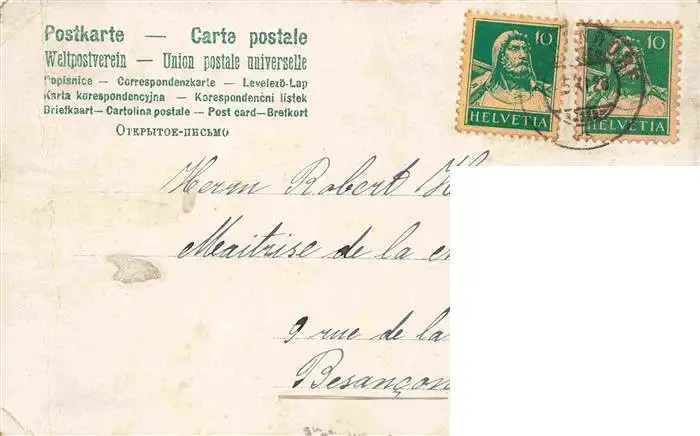 Postkarte — Carte postale
Weltpostverein — Union postale universelle
Dopisnice — Correspondenzkarte — Levelező-Lap
Karta korespondencyjna — Korespondenční lístek
Briefkaart — Cartolina postale — Post card — Brefkort
Открытое-письмо
10
HELVETIA
10
HELVETIA
Herrn Robert
Maitrise de la
9 rue de la
Besançon